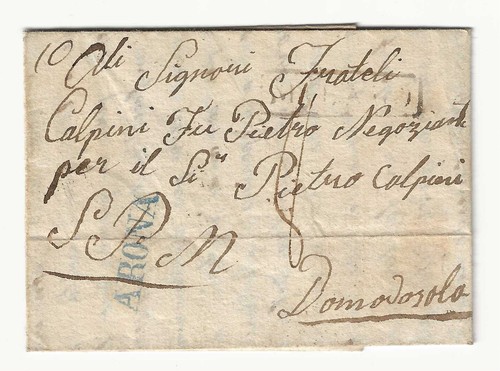 10 Alli Signori Frateli
Calpini Fu Pietro Negozianti
per il Sir Pietro Calpini
S P M
ARONA
Domodosola